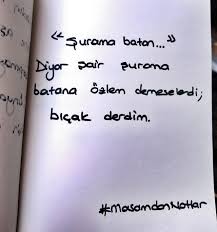 "Şurama batan..."
Diyor şair şurama
batana özlem demeselerdi;
bıçak derdim.
#MasamdanNotlar